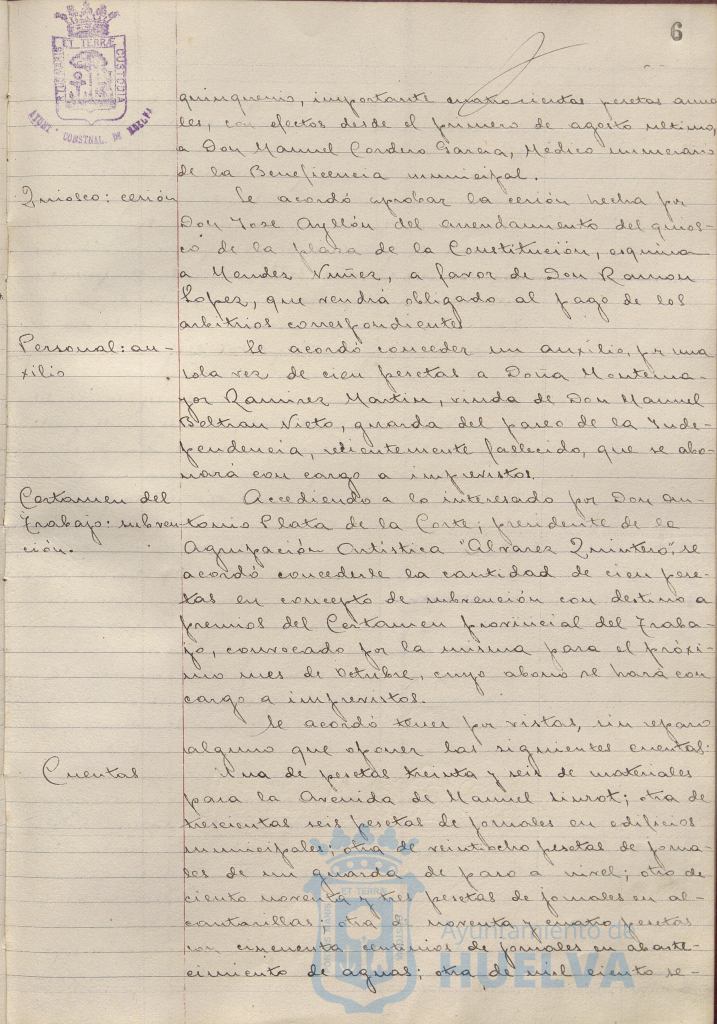 6
PORTUS MARIS ET TERRÆ CUSTODIA
AYUNT. CONSTNAL. DE HUELVA
quinquenio, importante cuatrocientas pesetas anua-
les, con efectos desde el primero de agosto último,
a Don Manuel Cordero García, Médico numerario
de la Beneficencia municipal.
Quiosco: cesión
Se acordó aprobar la cesión hecha por
Don Jose Ayllón del arrendamiento del quios-
co de la plaza de la Constitución, esquina
a Mendez Nuñez, a favor de Don Ramon
Lopez, que vendrá obligado al pago de los
arbitrios correspondientes
Personal: au-
xilio
Se acordó conceder un auxilio, por una
sola vez de cien pesetas a Doña Montema-
yor Ramirez Martin, viuda de Don Manuel
Beltran Nieto, guarda del paseo de la Inde-
pendencia, recientemente fallecido, que se abo-
nará con cargo a imprevistos.
Certamen del
Trabajo: subven-
ción.
Accediendo a lo interesado por Don An-
tonio Plata de la Corte, presidente de la
Agrupación Artística "Alvarez Quintero", se
acordó concederle la cantidad de cien pese-
tas en concepto de subvención con destino a
premios del Certamen provincial del Traba-
jo, convocado por la misma para el próxi-
mo mes de Octubre, cuyo abono se hará con
cargo a imprevistos.
Se acordó tener por vistas, sin reparo
alguno que oponer las siguientes cuentas:
Cuentas
Una de pesetas treinta y seis de materiales
para la Avenida de Manuel Siurot; otra de
trescientas seis pesetas de jornales en edificios
municipales; otra de veintiocho pesetas de jorna-
les de un guarda de paso a nivel; otra de
ciento noventa y tres pesetas de jornales en al-
cantarillas; otra de noventa y cuatro pesetas
con cincuenta centimos de jornales en abaste-
cimiento de aguas; otra de mil ciento se-
Ayuntamiento de
HUELVA